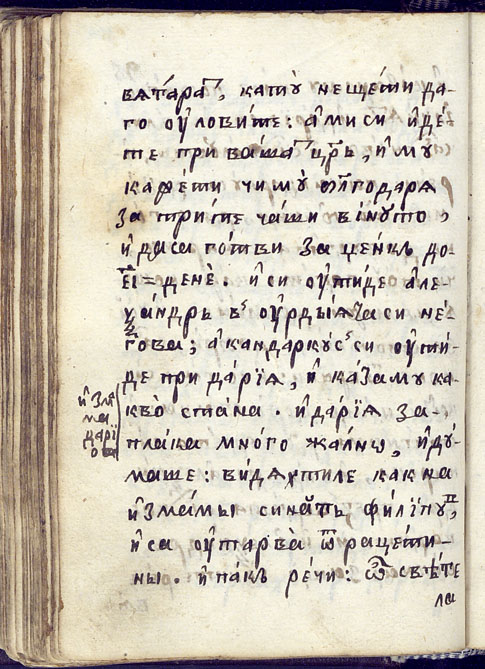 вѧтара, като нещети да-
го ѹловите: а̓ми си и̓де-
те при ваша црь, и̓ му
кажети чи мꙋ бл҃годарѧ
за трите чаши винѹто,
и̓ даса готви за ценкъ до-
е҃і = дене. и̓си ѿтиде але-
ѯандръ в ѹрдыѧта си не-
гова; а̓ кандаркꙋс си ѿти-
де при дарїѧ, и̓ каза мꙋ ка-
кво стана. и̓ дарїѧ за-
плака много жално, и̓ дꙋ-
маше: видѧхтиле как на
и̓змамы синатъ филїпꙋ,
и̓са ѹтарва ѿ рацети-
ны. и̓ пакъ речи: ѽ свѣте
ла
и̓злѧ
ма
дарїо